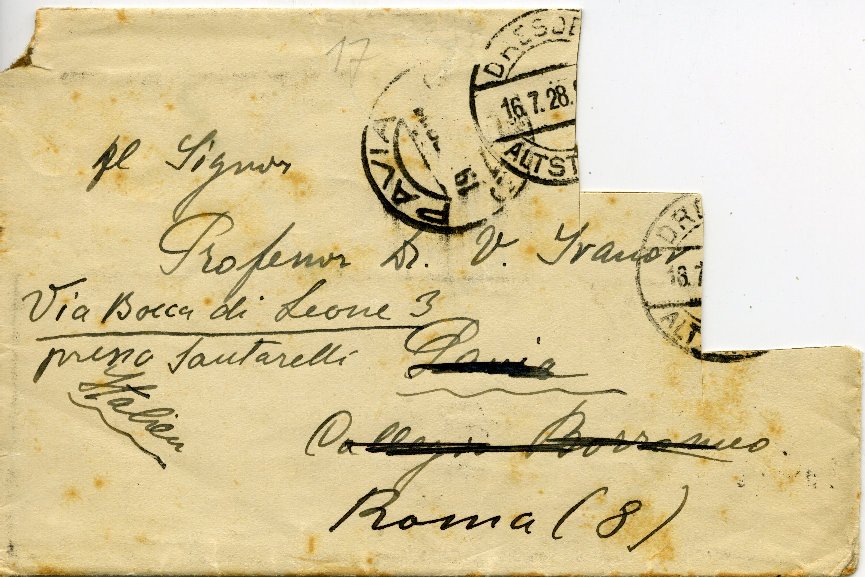 17
DRESDE
16.7.28.
ALTST
PAVIA
al Signor
Professor Dr. V. Ivanov
DR
16.7
ALT
Via Bocca di Leone 3
presso Santarelli
Pavia
Italien
Collegio Borromeo.
Roma (8)